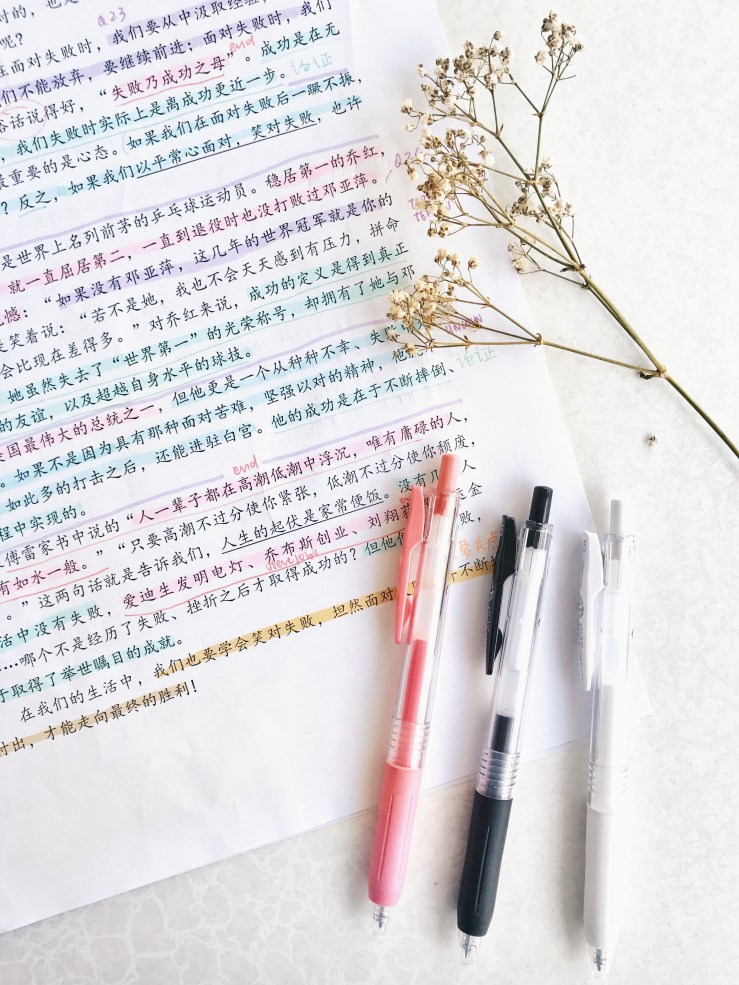 Q23
时的，也是
呢？
在面对失败时，我们要从中汲取经验，
们不能放弃，要继续前进；面对失败时，我们
俗话说得好，“失败乃成功之母”。成功是在无
end
，我们失败时实际上是离成功更近一步。论证
最重要的是心态。如果我们在面对失败后一蹶不振，
？反之，如果我们以平常心面对，笑对失败，也许
是世界上名列前茅的乒乓球运动员。稳居第一的乔红，
就一直屈居第二，一直到退役时也没打败过邓亚萍。
憾：“如果没有邓亚萍，这几年的世界冠军就是你的
笑着说：“若不是她，我也不会天天感到有压力，拼命
会比现在差得多。”对乔红来说，成功的定义是得到真正
她虽然失去了“世界第一”的光荣称号，却拥有了她与邓
的友谊，以及超越自身水平的球技。
国最伟大的总统之一，但他更是一个从种种不幸、失败
论证
。如果不是因为具有那种面对苦难，坚强以对的精神，他
如此多的打击之后，还能进驻白宫。他的成功是在于不断摔倒、
程中实现的。
end
傅雷家书中说的“人一辈子都在高潮低潮中浮沉，唯有庸碌的人，
有如水一般。”“只要高潮不过分使你紧张，低潮不过分使你颓废，
。”这两句话就是告诉我们，人生的起伏是家常便饭。没有几 人
活中没有失败，爱迪生发明电灯、乔布斯创业、刘翔获 金
…哪个不是经历了失败、挫折之后才取得成功的？但他们 败，
于取得了举世瞩目的成就。
在我们的生活中，我们也要学会笑对失败，坦然面对 不断
付出，才能走向最终的胜利！